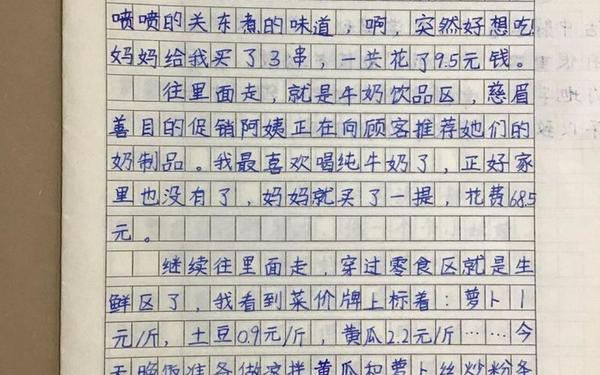 喷喷的关东煮的味道，啊，突然好想吃
妈妈给我买了3串，一共花了9.5元钱。
往里面走，就是牛奶饮品区，慈眉
善目的促销阿姨正在向顾客推荐她们的
奶制品。我最喜欢喝纯牛奶了，正好家
里也没有了，妈妈就买了一提，花费68.5
元。
继续往里面走，穿过零食区就是生
鲜区了，我看到菜价牌上标着：萝卜1
元/斤，土豆0.9元/斤，黄瓜2.2元/斤……今
天晚饭准备做凉拌黄瓜和萝卜丝炒粉条